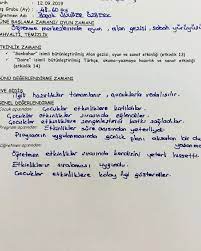 12.09.2019
Grubu (Ay) : 48-60 ay
GÜNE BAŞLAMA ZAMANI/ OYUN ZAMANI
Öğrenme merkezlerinde oyun, alan gezisi, sabah yürüyüşü
KAHVALTI, TEMİZLİK
ETKİNLİK ZAMANI
➢ "Sonbahar" isimli bütünleştirilmiş Alan gezisi, oyun ve sanat etkinliği (etkinlik 13)
➢ "Daire" isimli bütünleştirilmiş Türkçe, okuma-yazmaya hazırlık ve sanat etkinliği
(etkinlik 14)
GÜNÜ DEĞERLENDİRME ZAMANI
EVE GİDİŞ
İlgili hazırlıklar tamamlanır, çocuklarla vedalaşılır.
GENEL DEĞERLENDİRME
Çocuk açısından: Çocuklar etkinliklere katıldılar.
Çocuklar etkinlikler sırasında eğlendiler.
Çocuklar etkinliklerin zenginleştirilmesine katkı sağladılar.
Program açısından: Etkinlikler süre açısından yeterliydi.
Programın uygulanmasında çocuk planı aksatan bir
olmadı.
Öğretmen açısından:
Öğretmen etkinlikler sırasında kendisini yeterli hissetti.
Etkinliklerin sıralaması uygundu.
Çocuklar etkinliklere kolay ilgi gösterdiler.